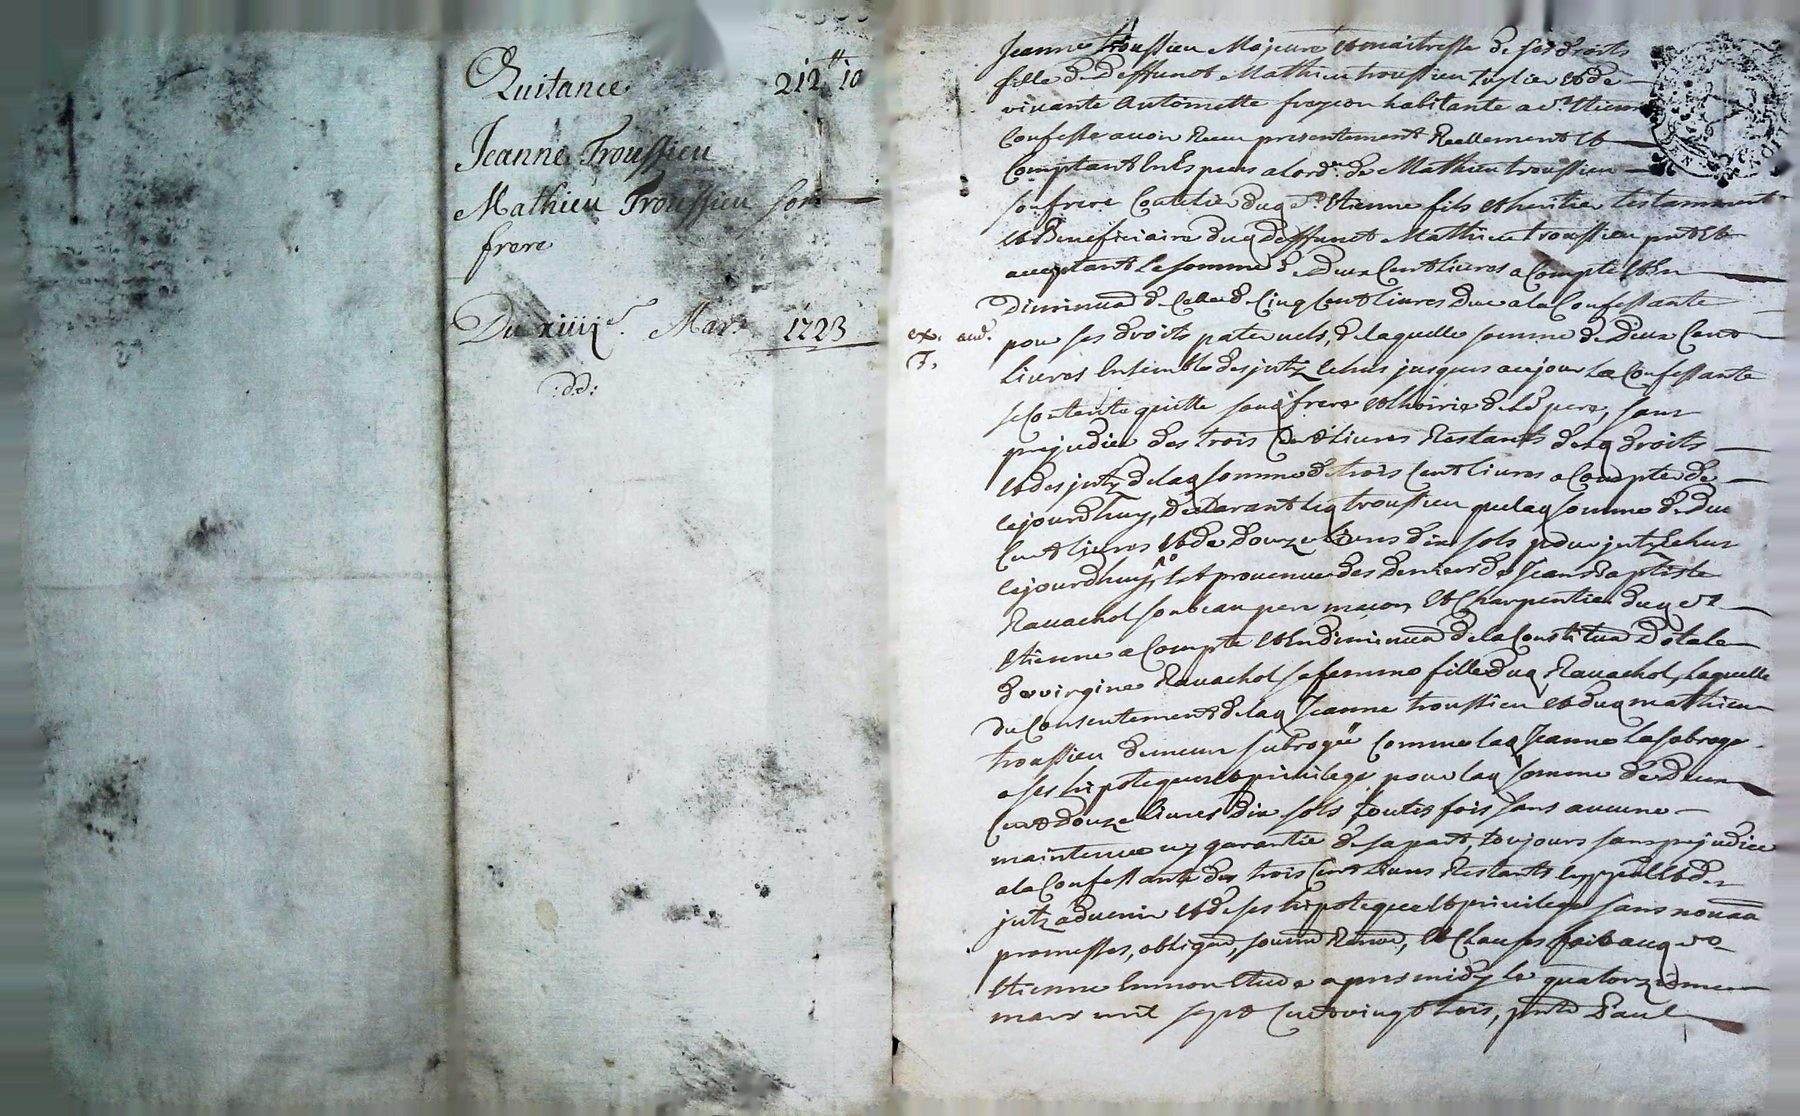 Quitance 212ᵗᵗ 10
Jeanne Troussieu
Mathieu Troussieu son
frere
Du xiiiiᵉ. Mars 1723
:dd:
Jeanne troussieu Majeure et maitresse de ses droits
fille de deffunct Mathieu troussieu et de
vivante Antoinette frezcon habitante a Sᵗ Etienne
Confesse avoir Receu presentement Reellement et
Comptant En Especes a lordᵉ. de Mathieu troussieu
son frere Coutelier dud Sᵗ Etienne fils et heritier testamentᵉ
et Beneficiaire dud deffunct Mathieu troussieu pnt et
acceptant la somme de deux Cent livres a Compte et En
Diminuaõn de Celle de Cinq Cent livres due a la Confessante
ex. aud.
pour ses droits paternels, de laquelle somme de Deux Cent
Livres Ensemble des jntz Echus jusques aujour La Confessante
se Contente quitte sond frere et lhoirie de sd pere, sans
prejudice des trois Cent livres Restants desd droits
et des jntz de lad somme de trois Cent livres a Compter de
cejourdhuy, Declarant led troussieu que lad somme de deux
Cent livres et de douze livres dix sols pour jntz Echus
cejourdhuy, Est provenue des deniers de Jean Baptiste
Ravachol son beau pere maçon et Charpentier dud Sᵗ
Etienne a Compte et En diminuaõn de la Constituaõn Dotale
de virgine Ravachol sa femme fille dud Ravachol, laquelle
du Consentement de lad Jeanne troussieu et dud mathieu
troussieu demeure subrogée Comme lad Jeanne La subroge
a ses hipoteques et privilege pour lad somme de deux
Cent douze livres dix sols toutes fois sans aucune
maintenue ny garantie de sa part, toujours sans prejudice
a la Confessante des trois Cent livres Restants et des
jntz advenir et de ses hipoteque et privilege sans novaõn
promesses, obligaõn, soumõn Renonõn, et Clauses fait aud Sᵗ
Etienne En mon Etude apres midy le quatorzieme
mars mil sept Cent vingt trois, pnts Paul